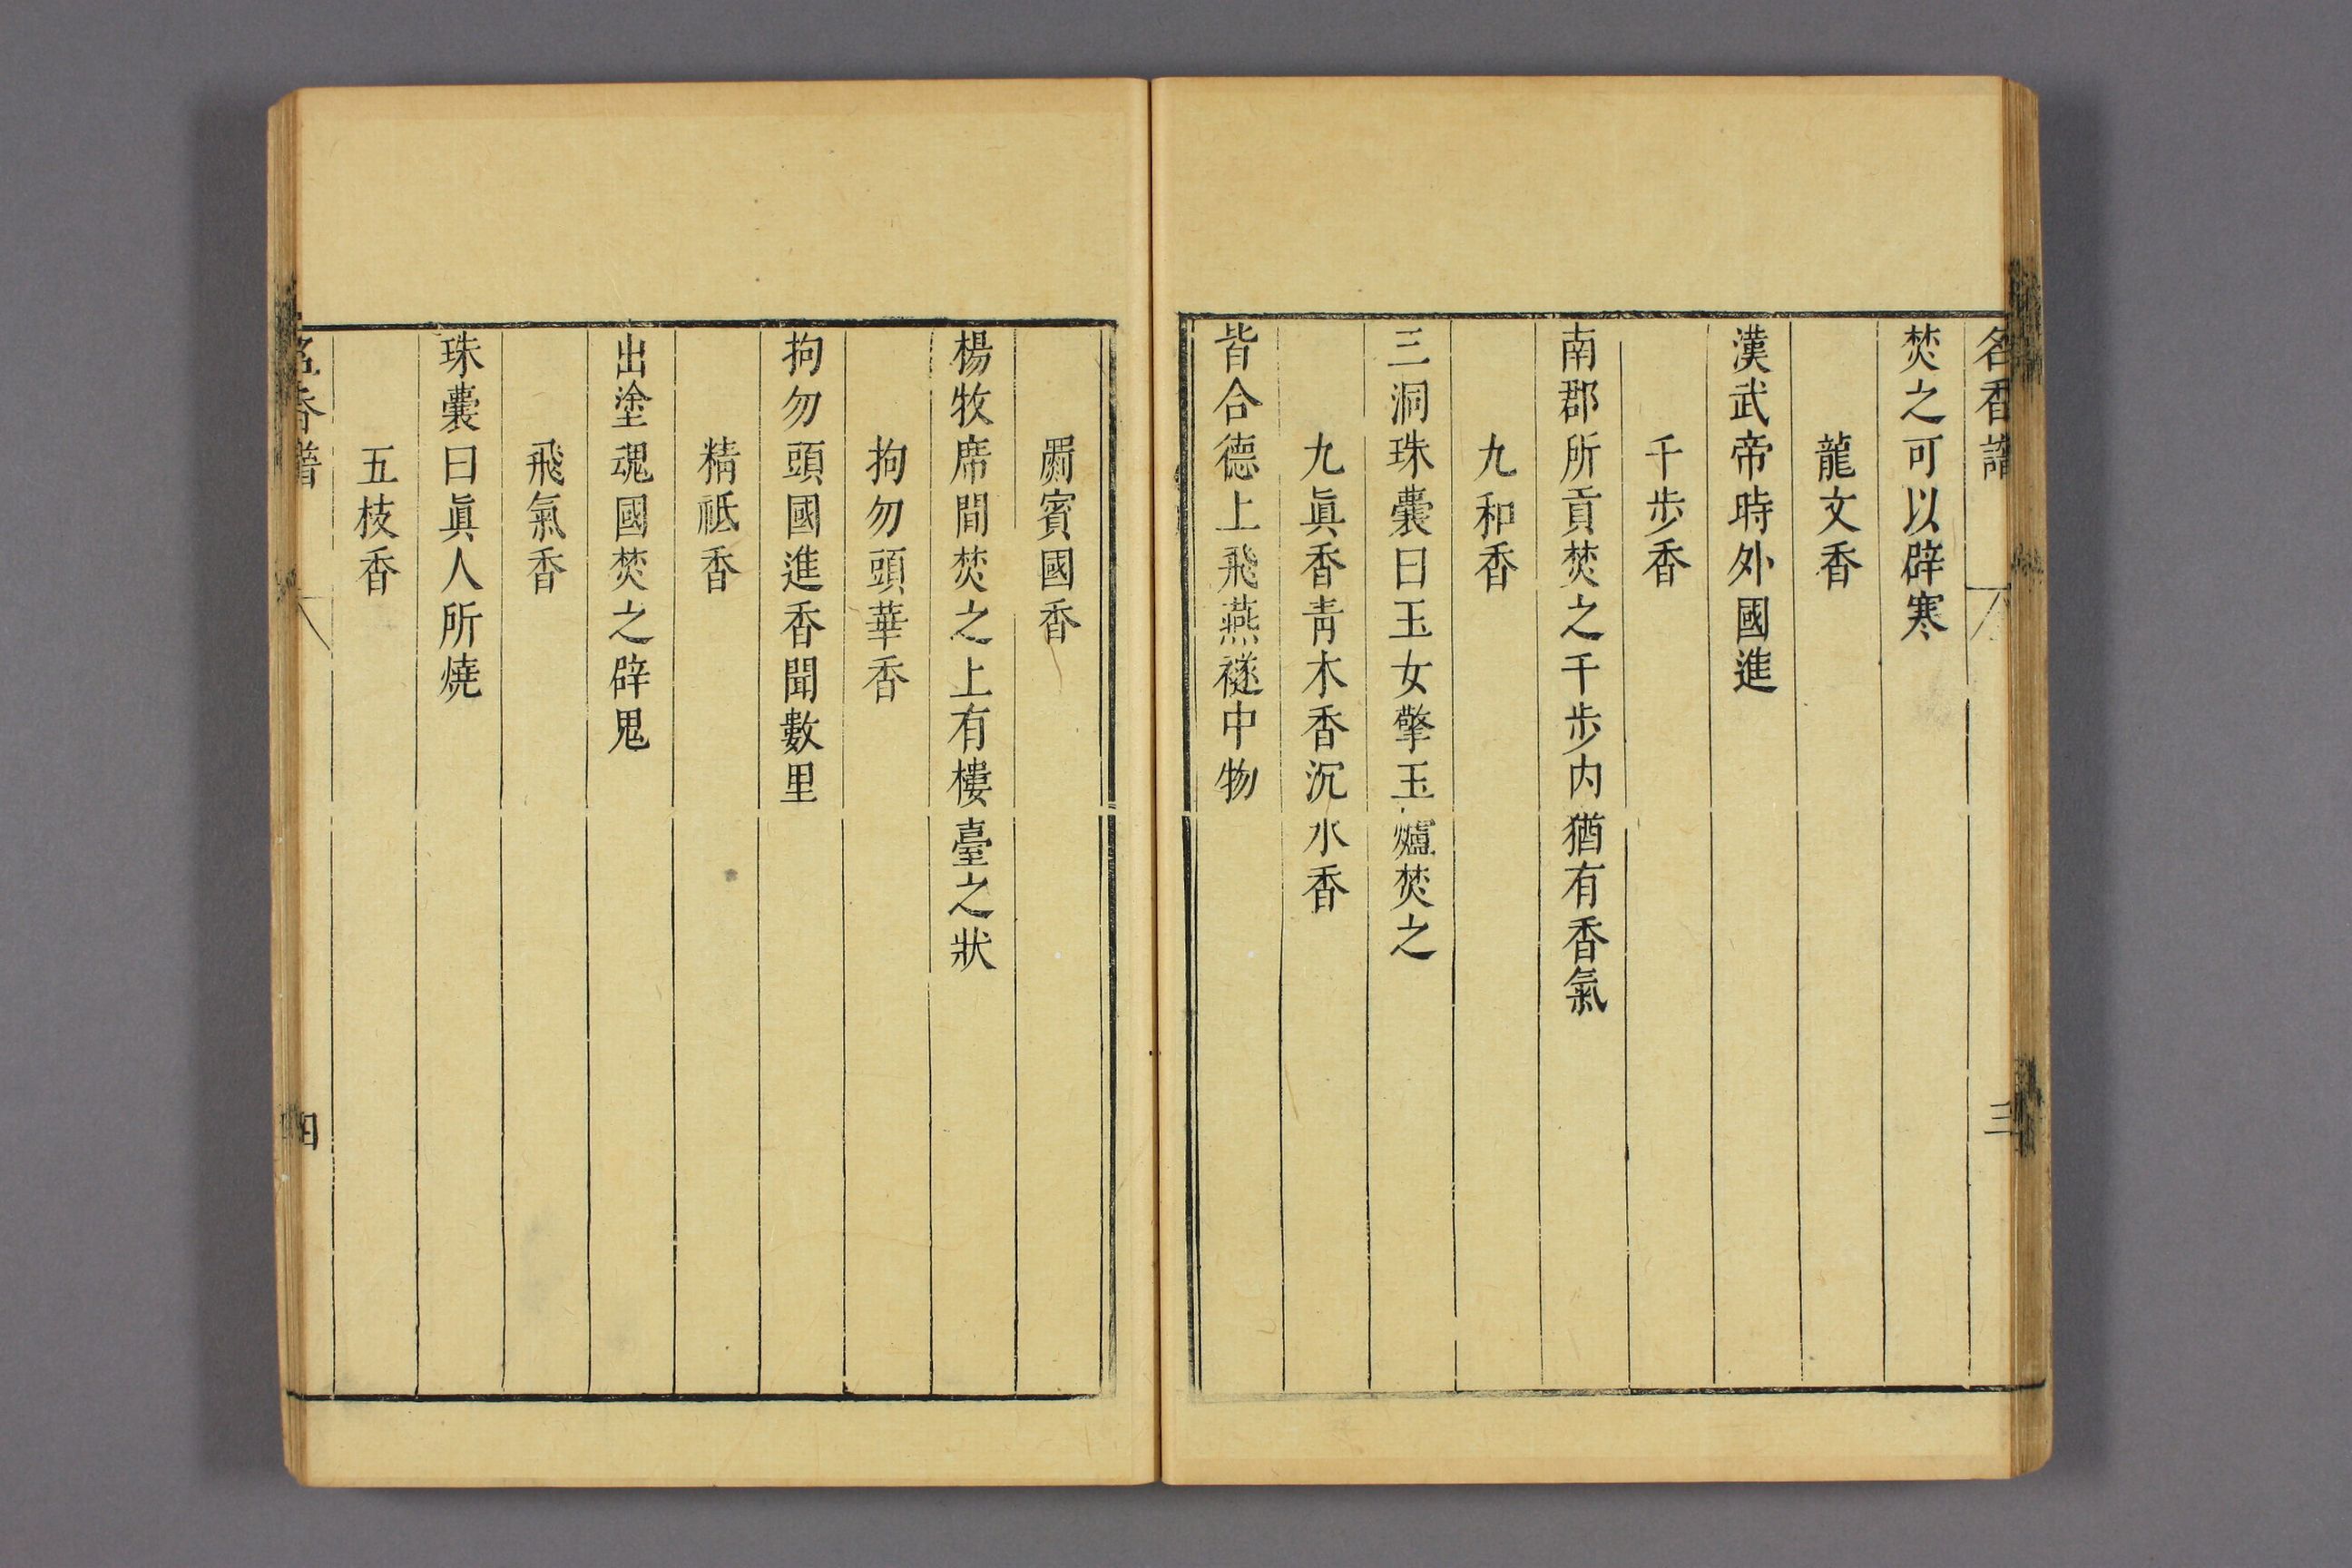 名香譜
三
焚之可以辟寒
龍文香
漢武帝時外國進
千步香
南郡所貢焚之千步内猶有香氣
九和香
三洞珠囊曰玉女擎玉爐焚之
九眞香青木香沉水香
皆合德上飛燕襚中物
罽賓國香
楊牧席間焚之上有樓臺之狀
拘勿頭華香
拘勿頭國進香聞數里
精祗香
出塗魂國焚之辟鬼
飛氣香
珠囊曰眞人所燒
五枝香
名香譜
四